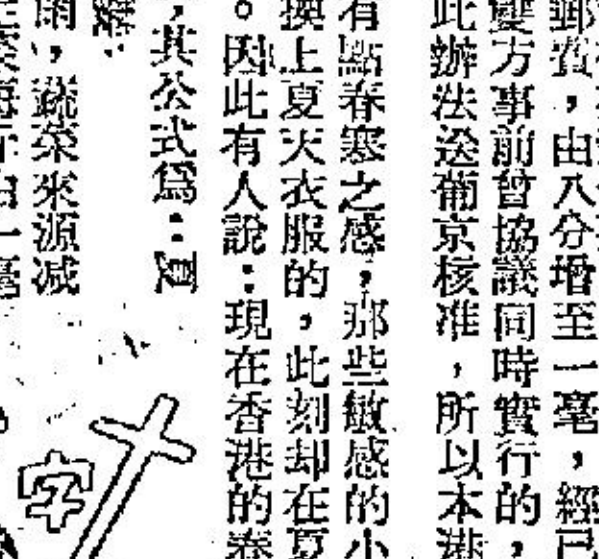 郵資,由八分增至一毫,經已
雙方事前曾協議同時實行的,
此辦法送葡京核准,所以本港
有點春寒之感,那些敏感的小
換上夏天衣服的,此刻却在夏
。因此有人說:現在香港的春
,其公式爲:
雨,蔬菜來源減
一毫
字